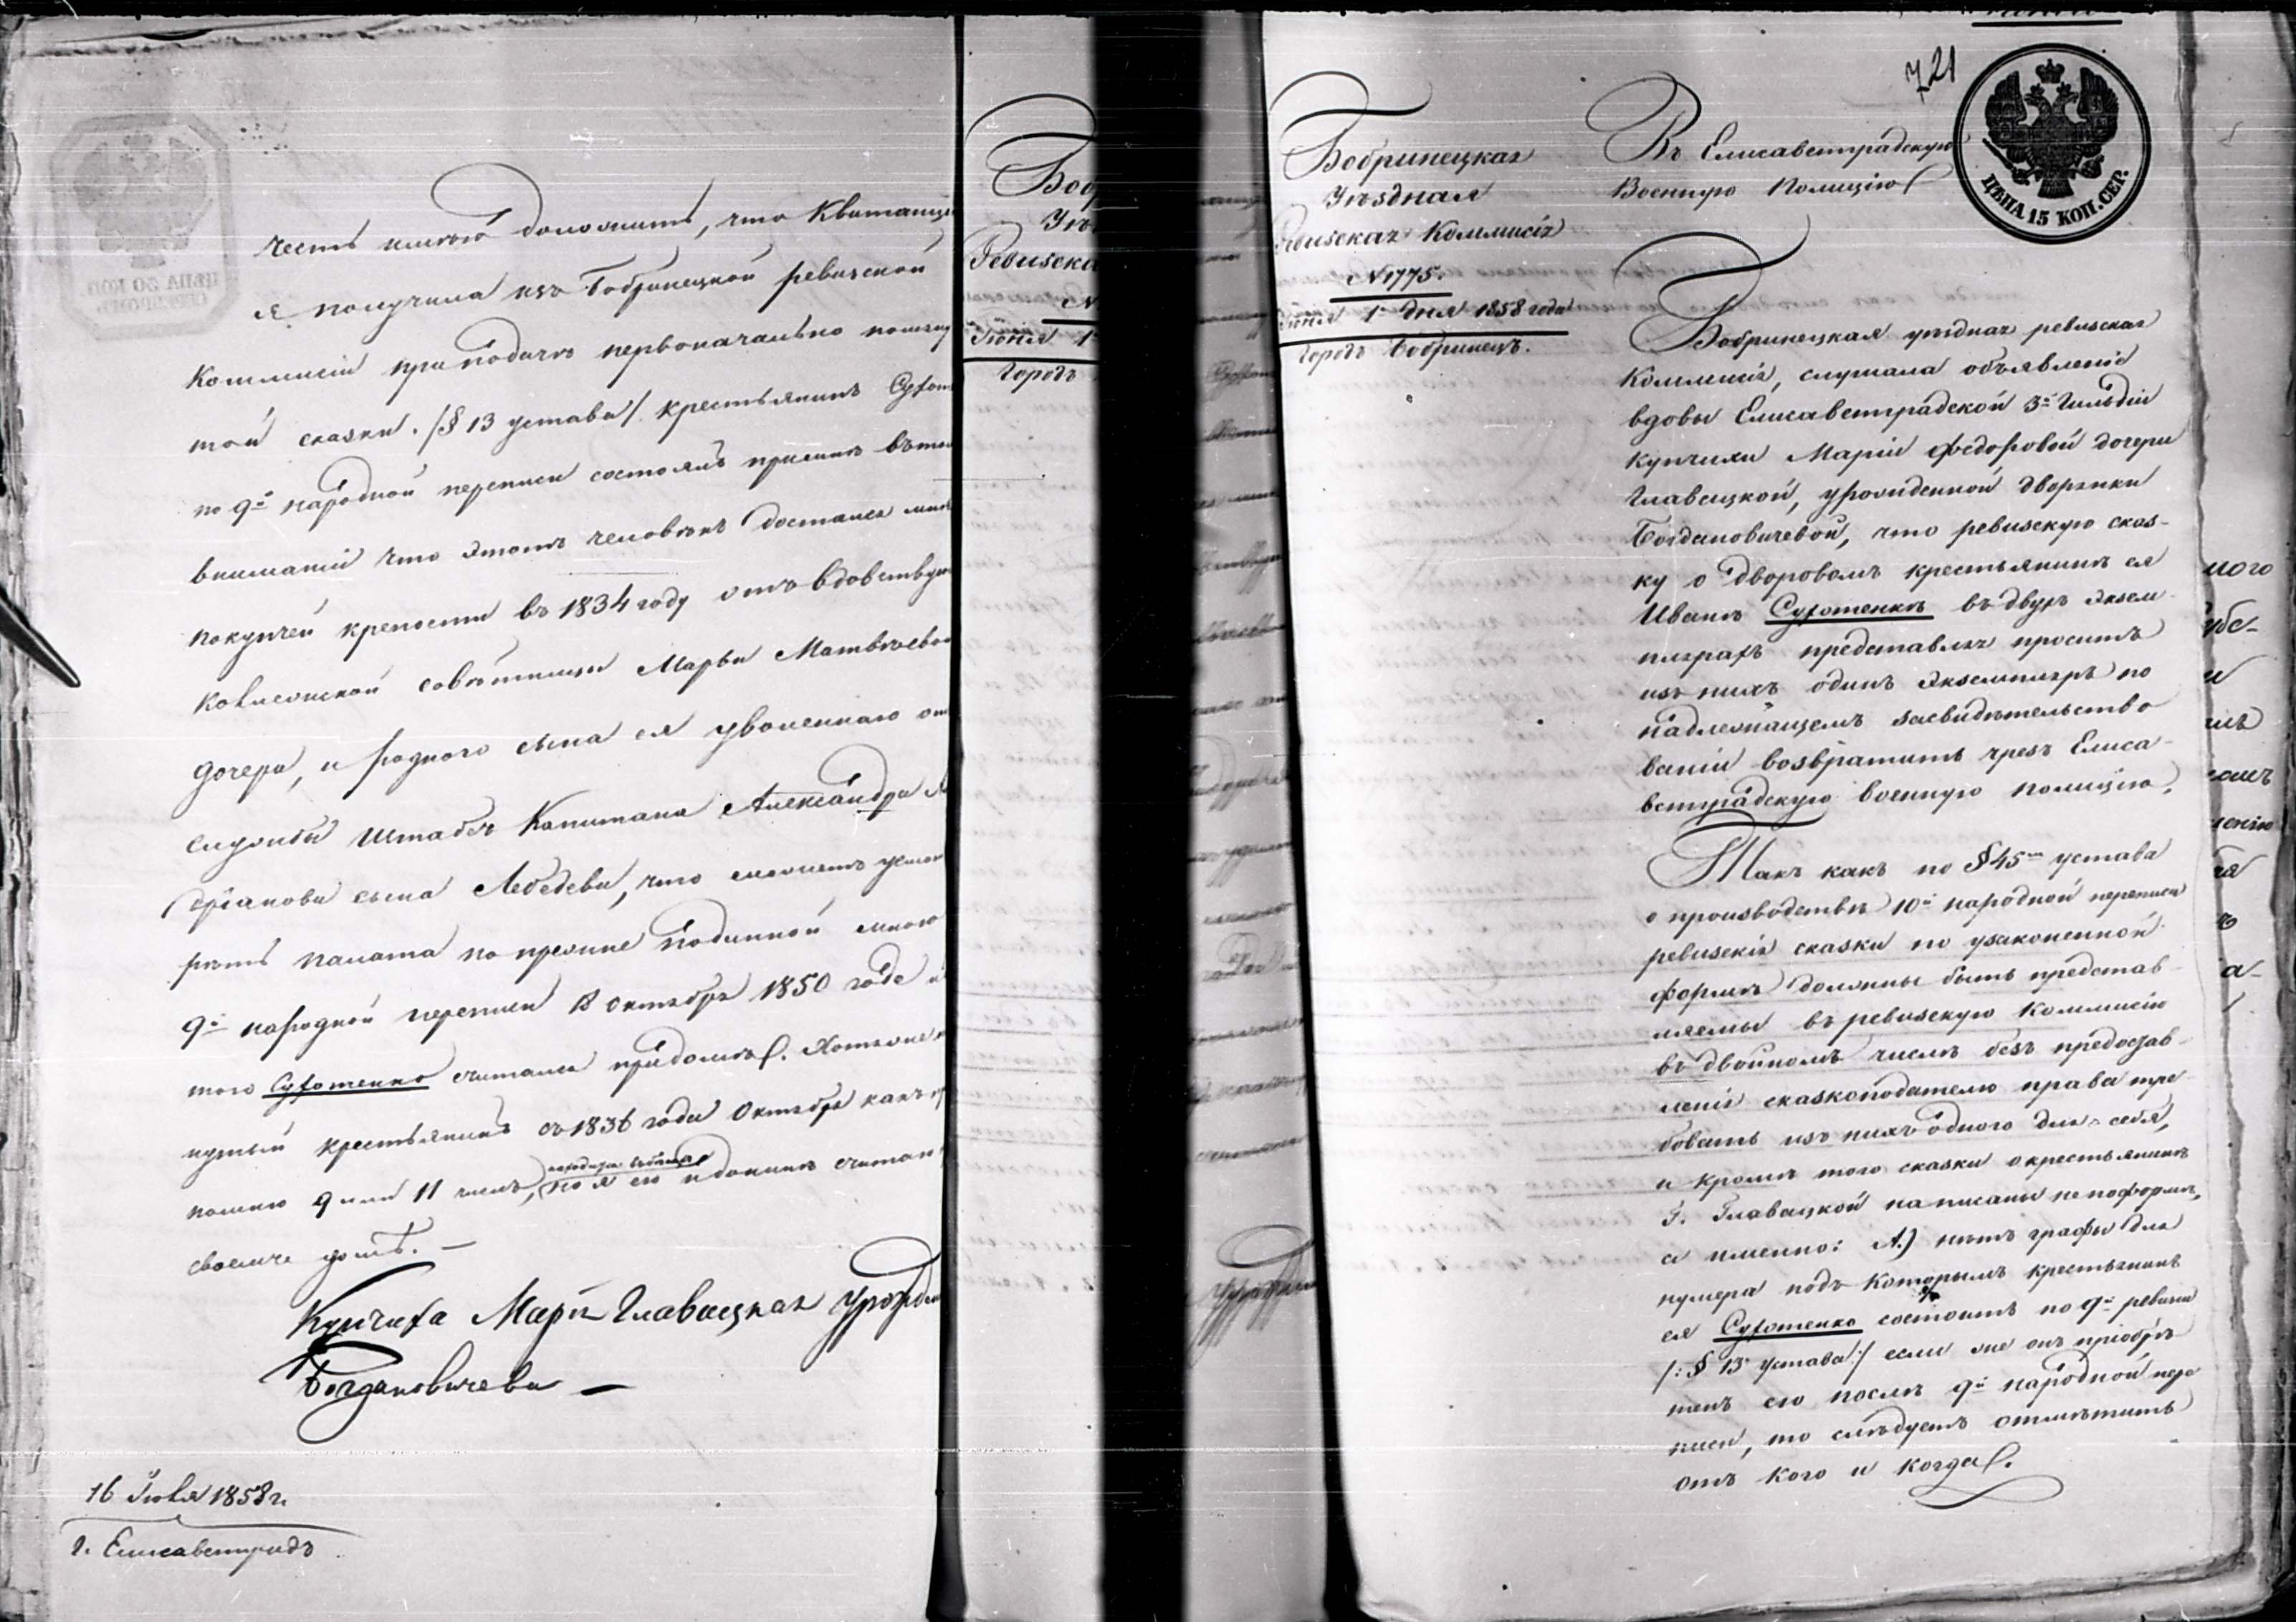 честь имѣю доложить, что Квитанци
я получила изъ Бобринецкой ревизской
Коммисіи при подачѣ первоначально
той сказки. /§ 13 устава/ крестьянинъ
по 9й народной переписи состоялъ
вниманіи что этотъ человѣкъ достался мнѣ
покупчей крепости въ 1834 году отъ вдовствую
Совѣтницы Марьи Матвѣевой
дочери, и роднаго сына ея уволеннаго от
службы Штабсъ Капитана Александра
сына Лебедева, что можетъ
палата по поданной мною
9й народной переписи в Октября 1850 года и
того Сухотенко считался
крестьянинъ съ 1836 года Октября какъ
помню 9 или 11 числъ, но я его и донынѣ считаю
своимъ
Купчиха Марія Главацкая урожден
Богдановичева —
16 Іюля 1858 г.
г. Елисаветградъ
Боб
Уѣ
Ревизска
N
Іюня 1
Городъ
721
Бобринецкая
Уѣздная
Ревизская Коммисія
N 1775.
Іюня 1 дня 1858 года
Городъ Бобринецъ.
Въ Елисаветградскую
Военную Полицію
ЦѢНА 15 КОП. СЕР.
Бобринецкая уѣздная ревизская
Коммисія, слушала объявленіе
вдовы Елисаветградской 3й Гильдіи
купчихи Маріи Федоровой дочери
Главацкой, урожденной дворянки
Богдановичевой, что ревизскую сказ-
ку о дворовомъ крестьянинѣ ея
Иванѣ Сухотенкѣ въ двухъ экзем-
плярахъ представляя проситъ
изъ нихъ одинъ экземпляръ по
надлежащемъ засвидѣтельство
ваніи возвратить чрезъ Елиса-
ветградскую военную полицію,
Такъ какъ по § 45му устава
о производствѣ 10й народной переписи
ревизскія сказки по узаконенной
формѣ должны быть представ-
ляемы въ ревизскую Коммисію
въ двойномъ числѣ безъ предостав-
ленія сказкоподателю права тре-
бовать изъ нихъ одного для себя,
и кромѣ того сказки о крестьянинѣ
Г. Главацкой написаны не по формѣ,
а именно: А.) нѣтъ графы для
нумера подъ Которымъ крестьянинъ
ея Сухотенко состоитъ по 9й ревизіи
/: § 13 устава :/ если же онъ пріобрѣ-
тенъ ею послѣ 9й народной пере
писи, то слѣдуетъ отмѣтить
отъ кого и когда.